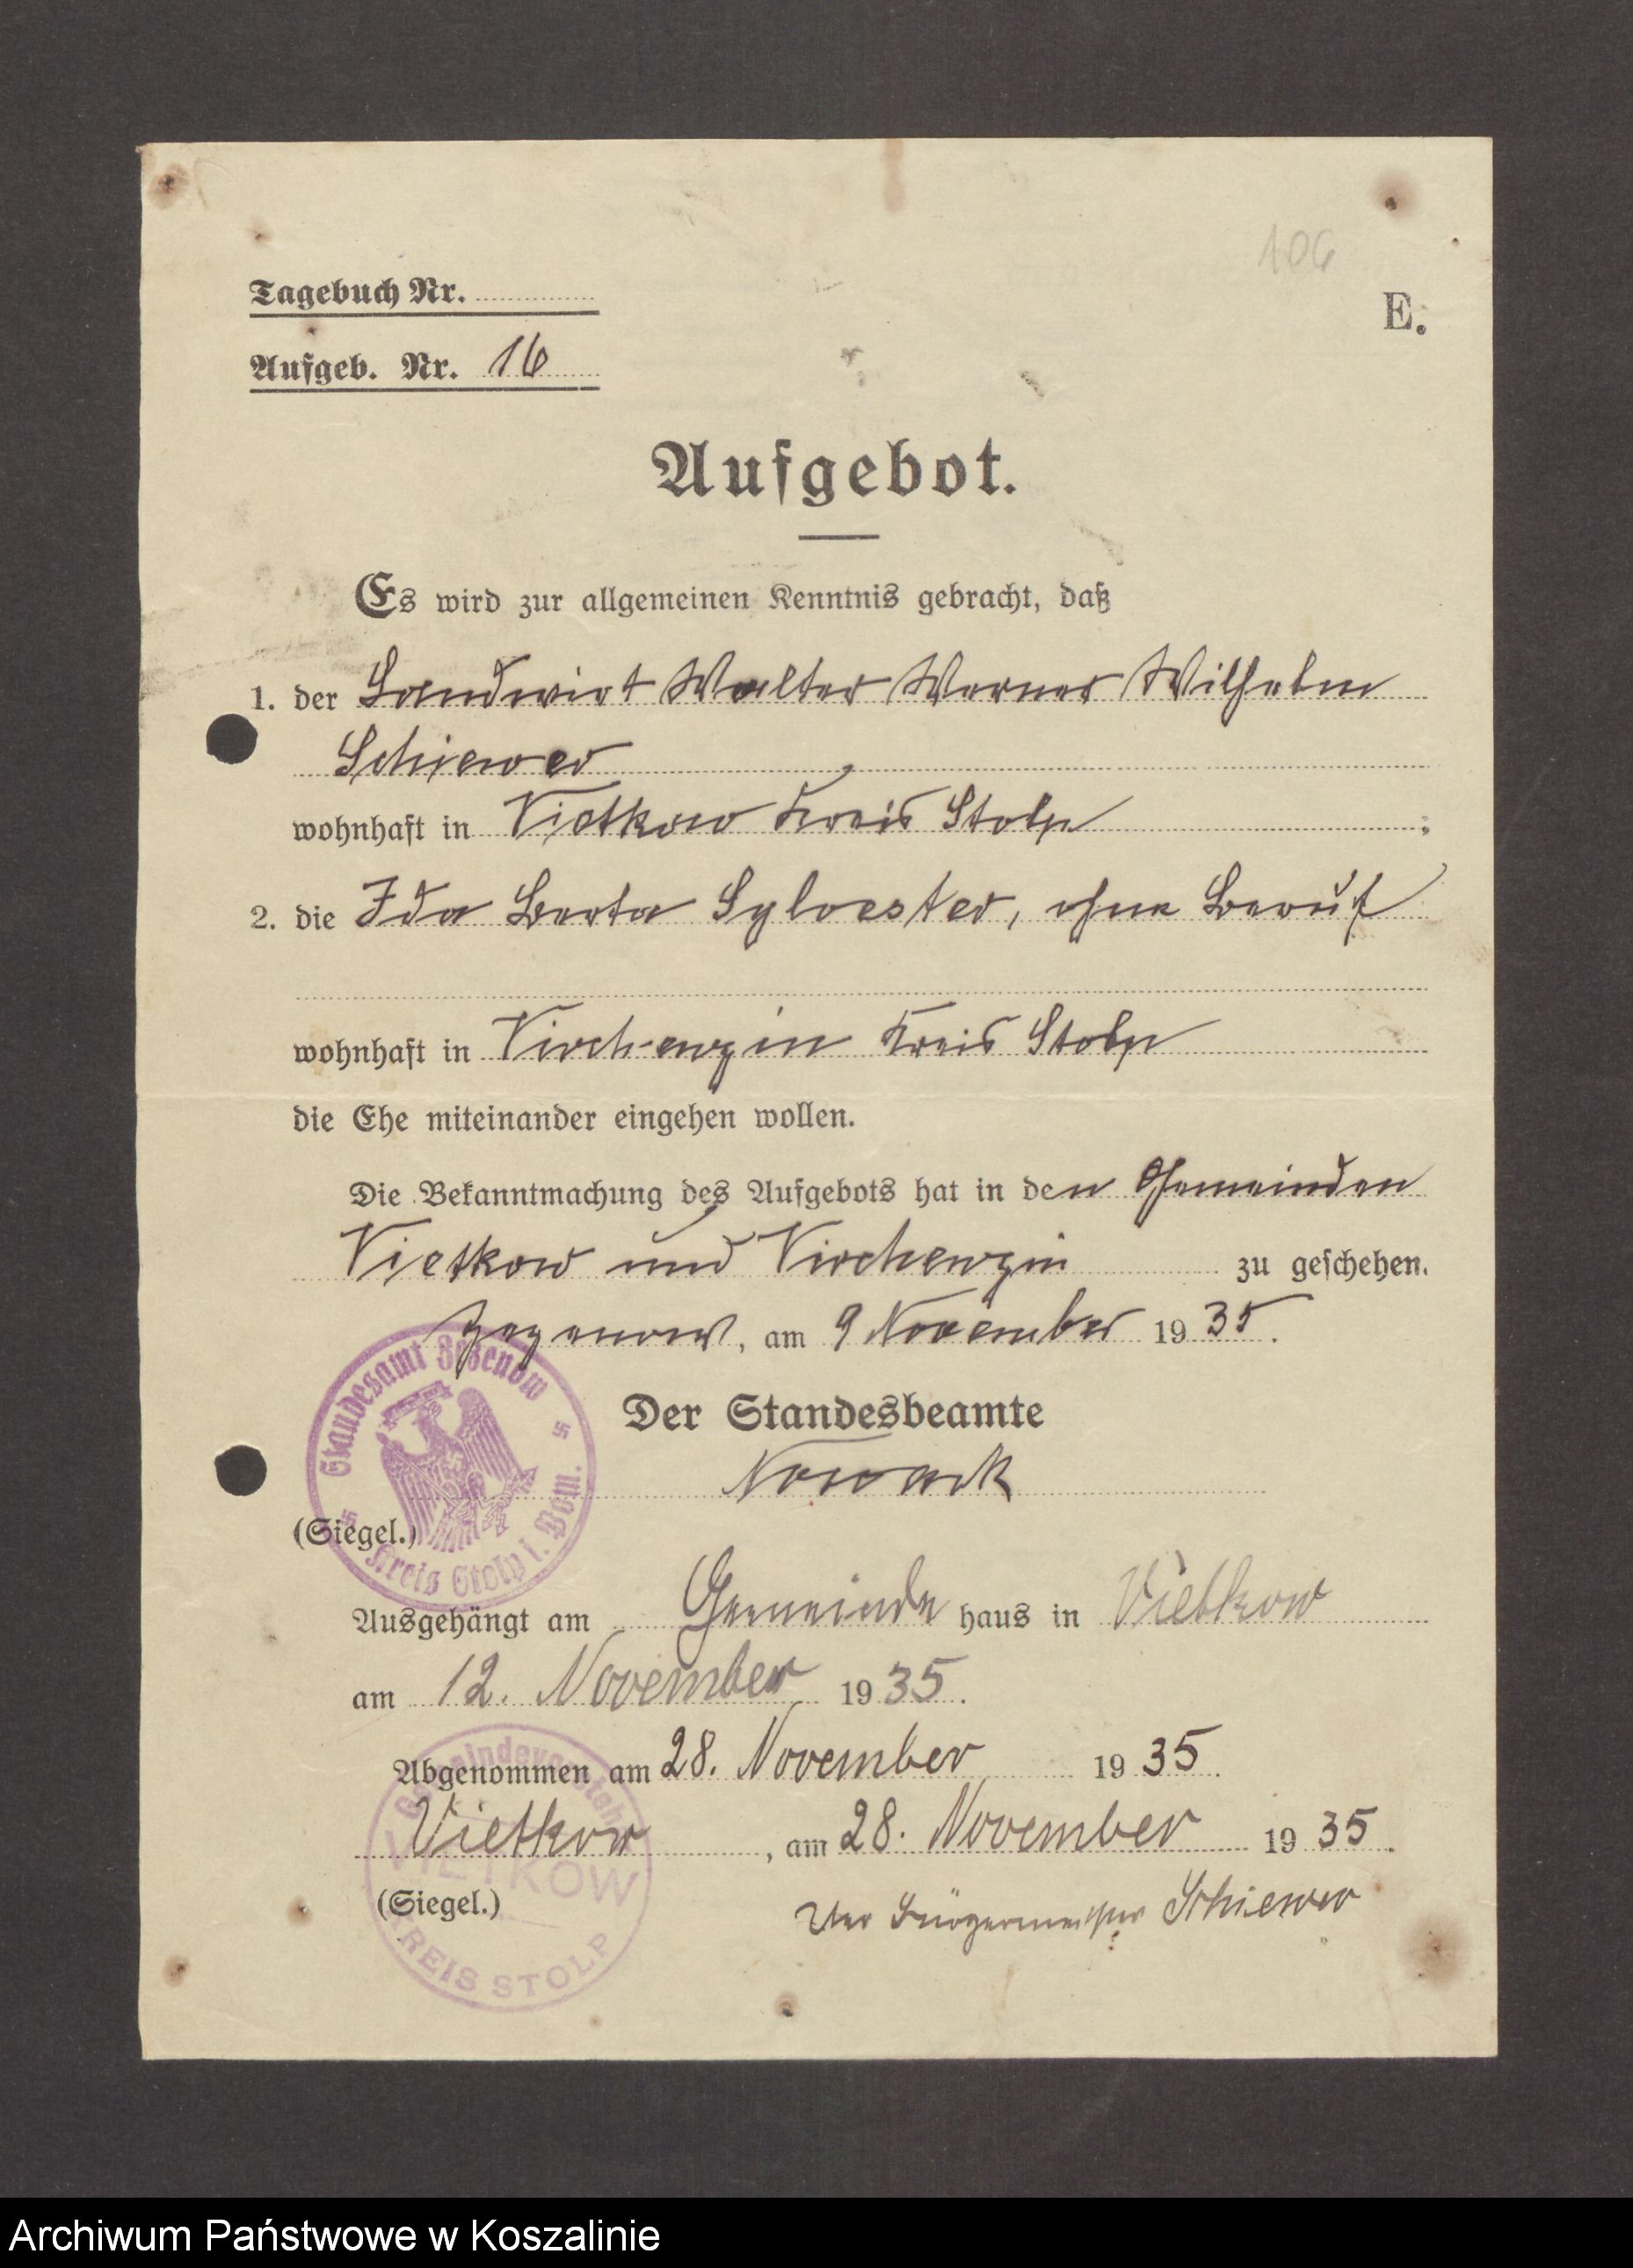 106
Tagebuch Nr.
E.
Aufgeb. Nr. 16
Aufgebot.
Es wird zur allgemeinen Kenntnis gebracht, daß
1. der Landwirt Walter Werner Wilhelm
Schiewer
wohnhaft in Vietkow Kreis Stolp ;
2. die Ida Berta Sylvester, ohne Beruf
wohnhaft in Virchenzin Kreis Stolp
die Ehe miteinander eingehen wollen.
Die Bekanntmachung des Aufgebots hat in den Gemeinden
Vietkow und Virchenzin zu geschehen.
Zezenow, am 9 November 1935.
Standesamt Zezenow
Kreis Stolp i. Pom.
Der Standesbeamte
Nowack
(Siegel.)
Ausgehängt am Gemeindehaus in Vietkow
am 12. November 1935.
Abgenommen am 28. November 1935.
Vietkow, am 28. November 1935.
Gemeindevorsteher
VIETKOW
KREIS STOLP
(Siegel.)
Der Bürgermeister Schiewer
Archiwum Państwowe w Koszalinie